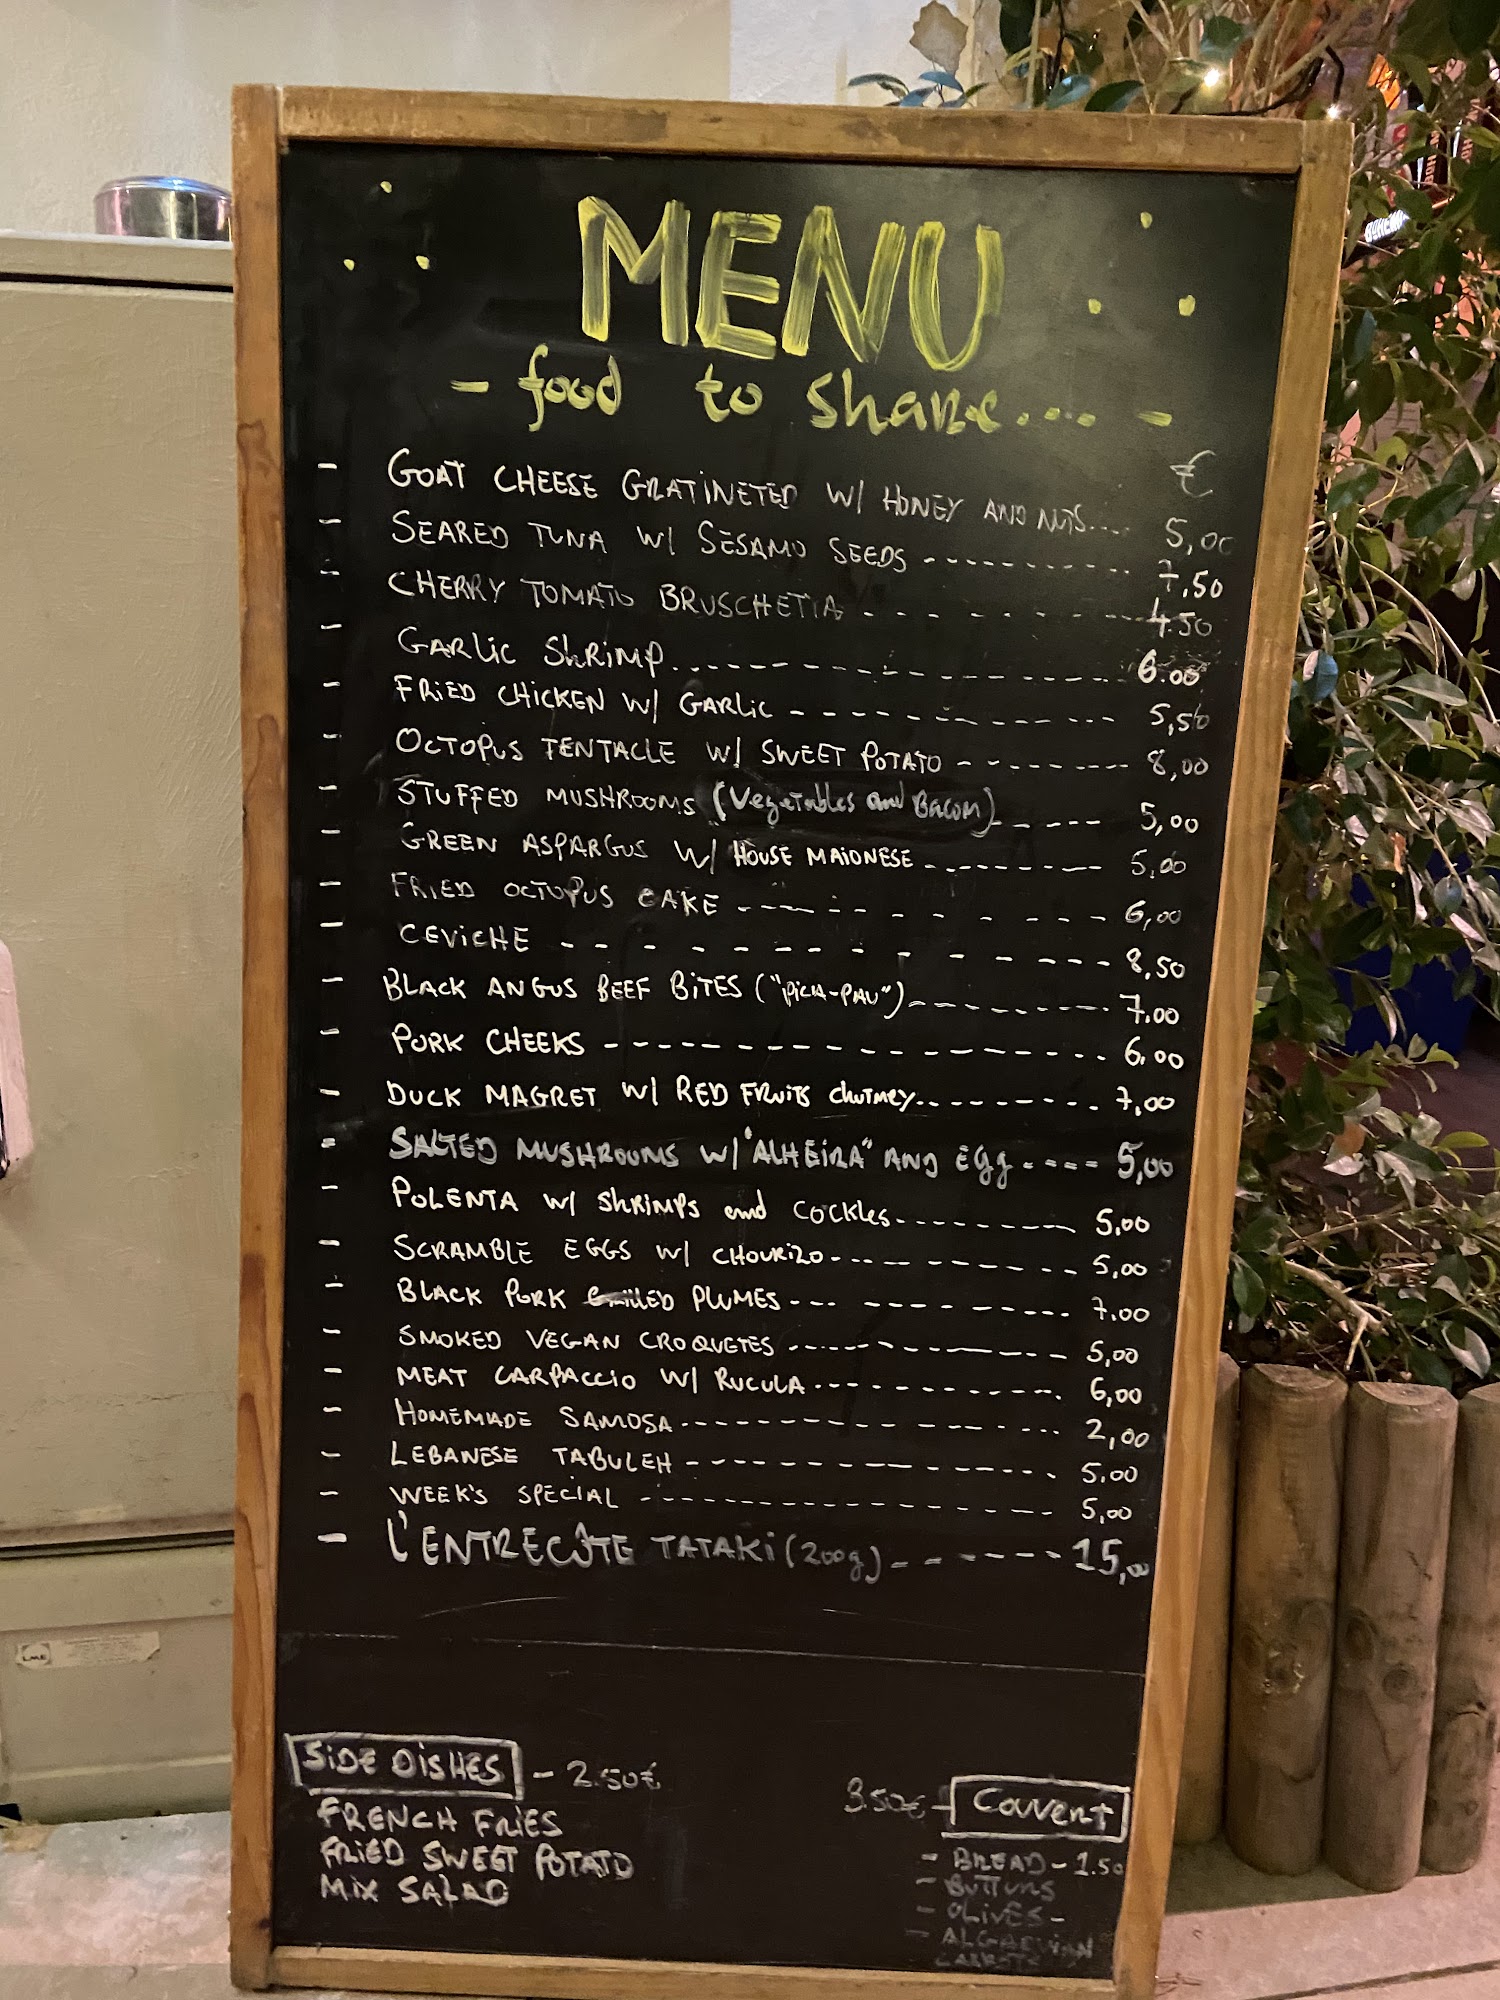 MENU
- food to share.... -
€
- GOAT CHEESE GRATINETED W/ HONEY AND NUTS.... 5,00
- SEARED TUNA W/ SESAMO SEEDS ---------- 7,50
- CHERRY TOMATO BRUSCHETTA ---------- 4.50
- GARLIC SHRIMP.------------- 6.00
- FRIED CHICKEN W/ GARLIC ----------- 5,50
- OCTOPUS TENTACLE W/ SWEET POTATO -------- 8,00
- STUFFED MUSHROOMS (Vegetables and Bacon)----- 5,00
- GREEN ASPARGUS W/ HOUSE MAIONESE -------- 5,00
- FRIED OCTOPUS CAKE ----------- 6,00
- CEVICHE ------------- 8,50
- BLACK ANGUS BEEF BITES ("PICA-PAU")-------- 7.00
- PORK CHEEKS ------------------ 6.00
- DUCK MAGRET W/ RED FRUITS CHUTNEY.-------- 7,00
- SALTED MUSHROOMS W/ "ALHEIRA" AND EGG ---- 5,00
- POLENTA W/ SHRIMPS and COCKLES.-------- 5,00
- SCRAMBLE EGGS W/ CHOURIZO----------- 5,00
- BLACK PORK GRILLED PLUMES----------- 7.00
- SMOKED VEGAN CROQUETES ------------ 5,00
- MEAT CARPACCIO W/ RUCULA------------ 6,00
- HOMEMADE SAMOSA.--------------- 2,00
- LEBANESE TABULEH --------------- 5.00
- WEEK'S SPECIAL ---------------- 5,00
- L'ENTRECÔTE TATAKI (200g)-------- 15,00
SIDE DISHES - 2.50€
FRENCH FRIES
FRIED SWEET POTATO
MIX SALAD
3.50€ - COUVERT
- BREAD - 1.50
- BUTTURS
- OLIVES -
- ALGARVIAN